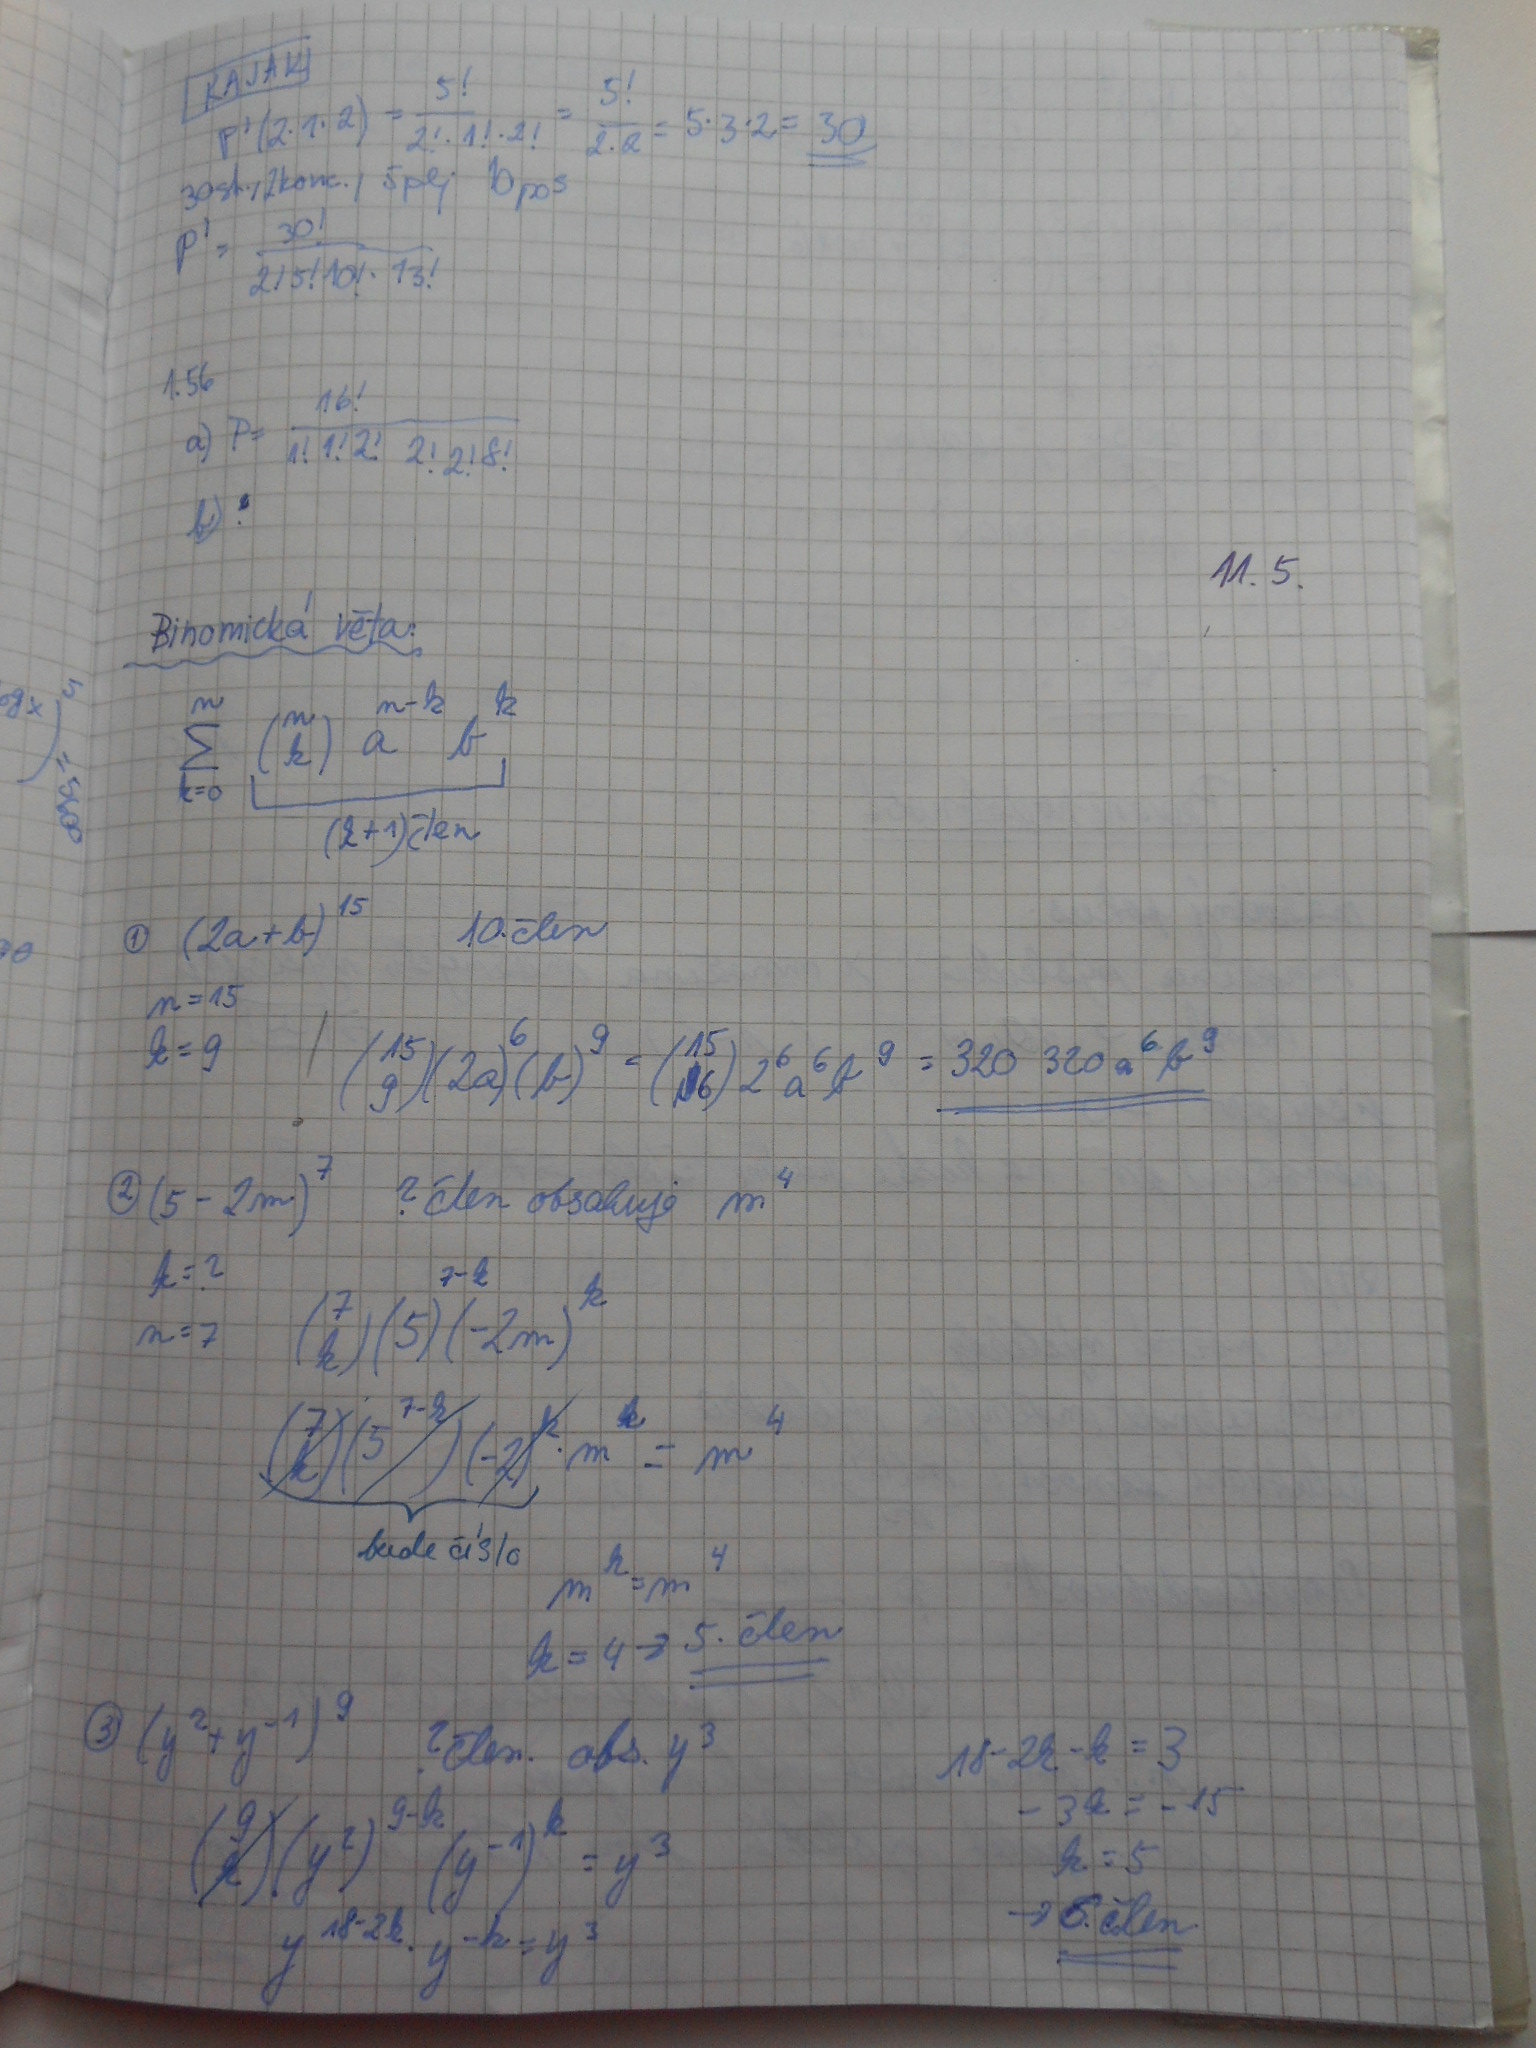 KAJAK
P'(2·1·2) = 5!/(2!·1!·2!) = 5!/(2·2) = 5·3·2 = 30
30st., 2konc., 5plej 10pos
P' = 30!/(2!5!10!·13!)
1.56
a) P = 16!/(1!1!2! 2!2!8!)
b) ?
11. 5.
Binomická věta:
∑_{k=0}^{n} (n k) a^{n-k} b^k
(k+1)člen
① (2a+b)^15 10.člen
n=15
k=9 (15 9)(2a)^6(b)^9 = (15 6) 2^6 a^6 b^9 = 320 320 a^6 b^9
② (5-2m)^7 ? člen obsahuje m^4
k=?
n=7 (7 k)(5)^{7-k}(-2m)^k
(7 k)(5^{7-k})(-2)^k · m^k = m^4
bude číslo
m^k = m^4
k = 4 → 5. člen
③ (y^2+y^{-1})^9 ?člen. obs. y^3
(9 k)(y^2)^{9-k} (y^{-1})^k = y^3
y^{18-2k} · y^{-k} = y^3
18-2k-k = 3
-3k = -15
k = 5
→ 6.člen